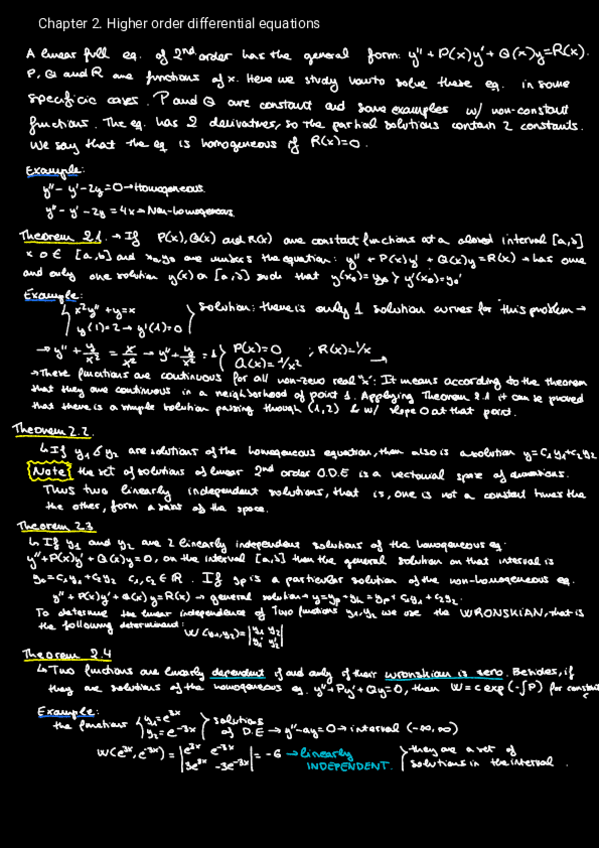 Chapter 2. Higher order differential equations
A linear full eq. of 2nd order has the general form: y'' + P(x)y' + Q(x)y = R(x).
P, Q and R are functions of x. Here we study how to solve these eq. in some
specific cases. P and Q are constant and some examples w/ non-constant
functions. The eq. has 2 derivatives, so the partial solutions contain 2 constants.
We say that the eq is homogeneous if R(x)=0.
Example:
y'' - y' - 2y = 0 → Homogeneous
y'' - y' - 2y = 4x → Non-homogeneous
Theorem 2.1. → If P(x), Q(x) and R(x) are constant functions at a closed interval [a,b]
x0 ∈ [a,b] and the equation: y'' + P(x)y' + Q(x)y = R(x) → has one
and only one solution y(x) on [a,b] such that y(x0) = y0 y y'(x0) = y0'
Example:
x²y'' + y = x
y(1) = 2 → y'(1) = 0
solution: there is only 1 solution curves for this problem →
→ y'' + y/x² = x/x² → y'' + y/x² = 1 P(x)=0 ; R(x)=1/x
Q(x)=1/x² →
→ These functions are continuous for all non-zero real "x". It means according to the theorem
that they are continuous in a neighborhood of point 1. Applying Theorem 2.1 it can be proved
that there is a simple solution passing through (1,2) & w/ slope 0 at that point.
Theorem 2.2.
↳ If y1 & y2 are solutions of the homogeneous equation, then also is a solution y = c1y1 + c2y2
Note: the set of solutions of linear 2nd order O.D.E is a vectorial space of
Thus two linearly independent solutions, that is, one is not a constant times the
the other, form a of the space.
Theorem 2.3
↳ If y1 and y2 are 2 linearly independent solutions of the homogeneous eq.
y'' + P(x)y' + Q(x)y = 0, on the interval [a,b] then the general solution on that interval is
yo = c1y1 + c2y2 c1, c2 ∈ R. If yp is a particular solution of the non-homogeneous eq.
y'' + P(x)y' + Q(x)y = R(x) → general solution → y = yp + yh = yp + c1y1 + c2y2.
To determine the linear independence of Two functions y1, y2 we use the WRONSKIAN, that is
the following determinant: W(y1,y2) = |y1 y2|
|y1' y2'|
Theorem 2.4
↳ Two functions are linearly dependent if and only if their wronskian is zero. Besides, if
they are solutions of the homogeneous eq. y'' + Py' + Qy = 0, then W = c exp(-∫P) for constant
Example:
the functions y1 = e^3x solutions
y2 = e^-3x of D.E → y'' - 9y = 0 → interval (-∞,∞)
W(e^3x, e^-3x) = |e^3x e^-3x| = -6 → linearly they are a set of
|3e^3x -3e^-3x| INDEPENDENT. solutions in the interval.